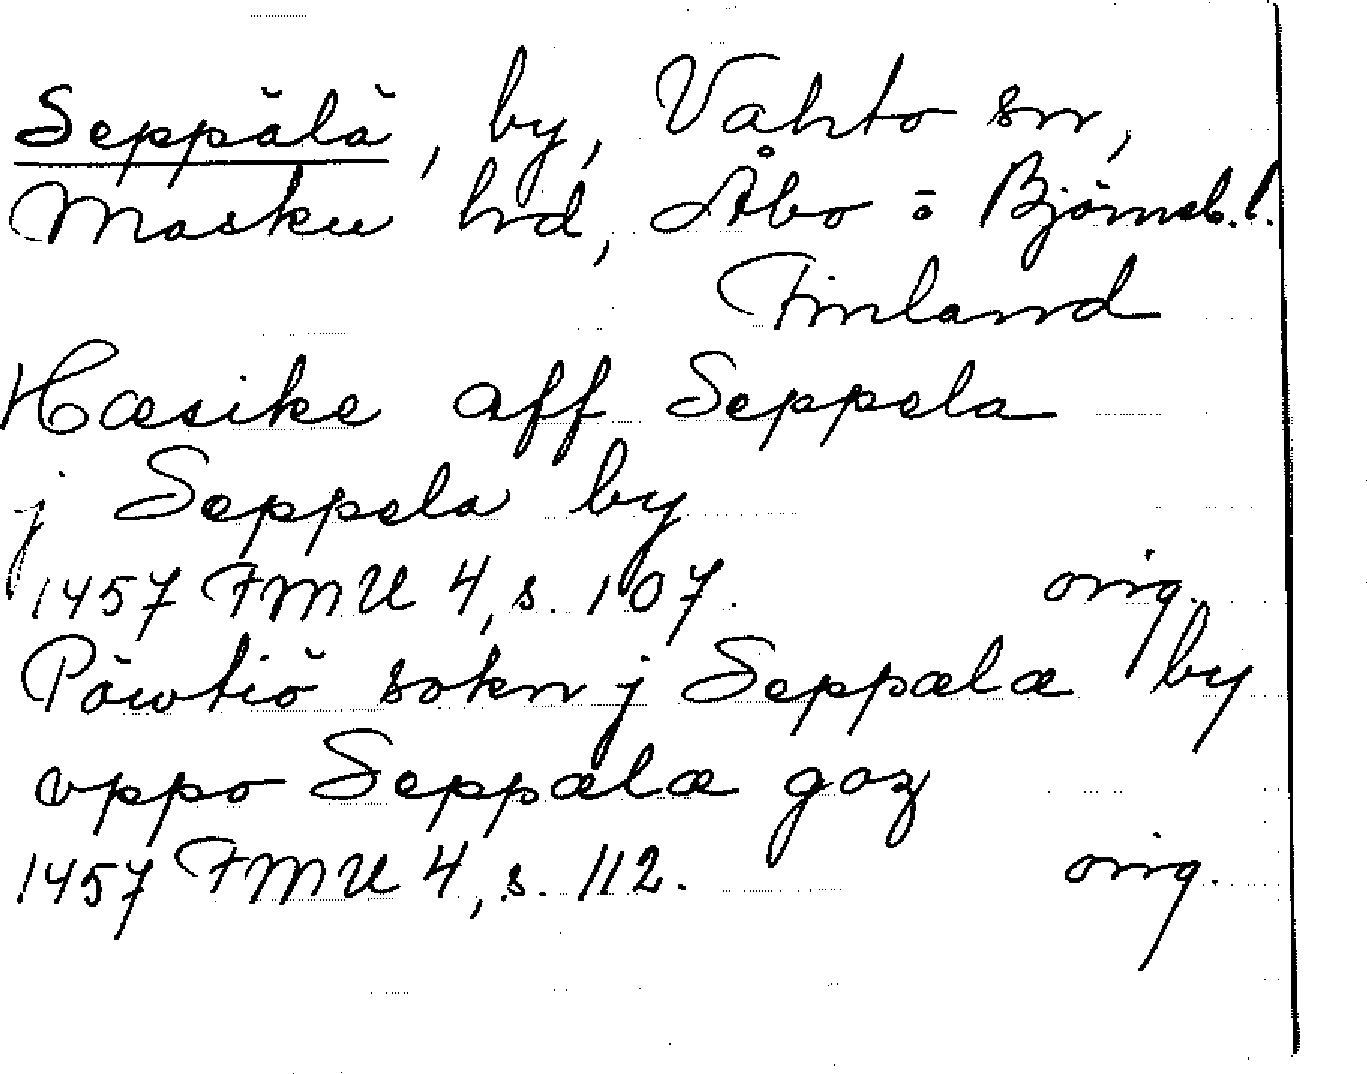 Seppälä, by, Vahto sn,
Masku hd, Åbo o. Björneb. l.
Finland
Hæsike aff Seppela
j Seppela by
1457 FMU 4, s. 107. orig.
Pöwtiö sokn j Seppælæ by
vppo Seppælæ goz
1457 FMU 4, s. 112. orig.